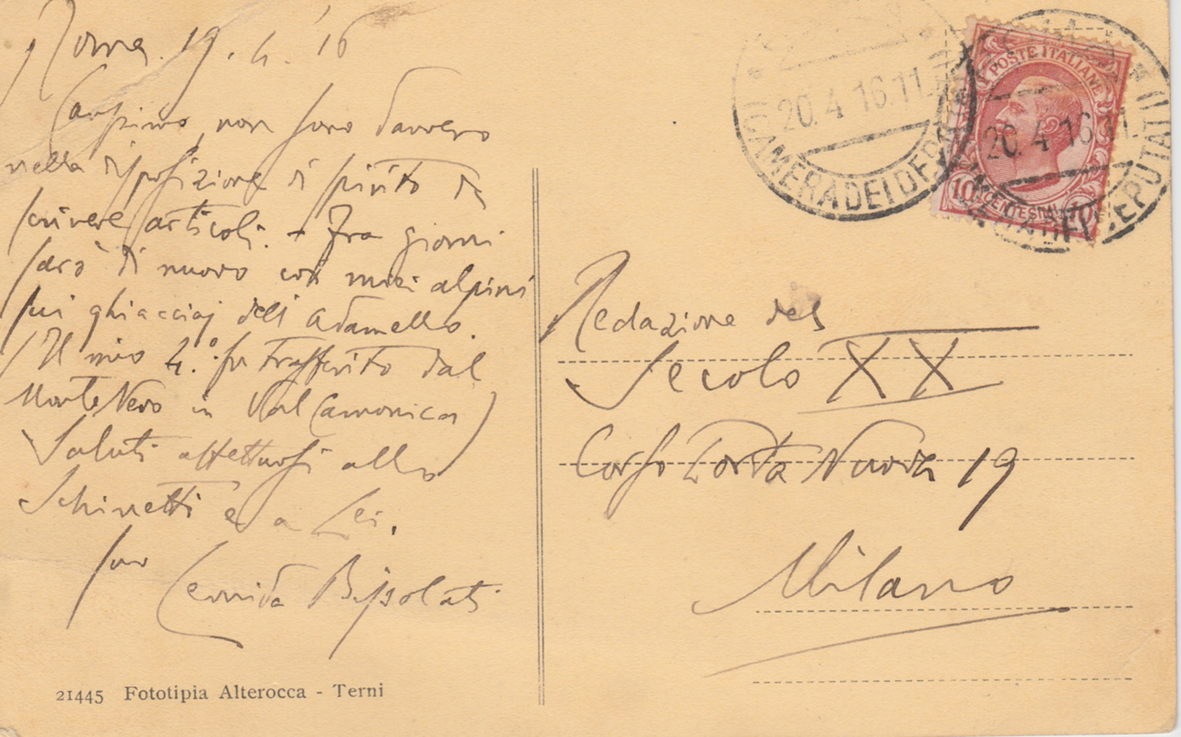 Roma 19.4.16
Carissimo, non sono davvero
nella disposizione di spirito da
scrivere articoli. - Fra giorni
sarò di nuovo coi miei alpini
sui ghiacciaj dell'Adamello.
(Il mio 4.° fu trasferito dal
Monte Nero in Val Camonica)
Saluti affettuosi allo
Schinetti e a Lei.
suo
Leonida Bissolati
21445 Fototipia Alterocca - Terni
20.4 16.11
CAMERA DEI DEP
POSTE ITALIANE
10 CENTESIMI
20.4 16.11.
EPUTA
Redazione del
Secolo XX
Corso Porta Nuova 19
Milano